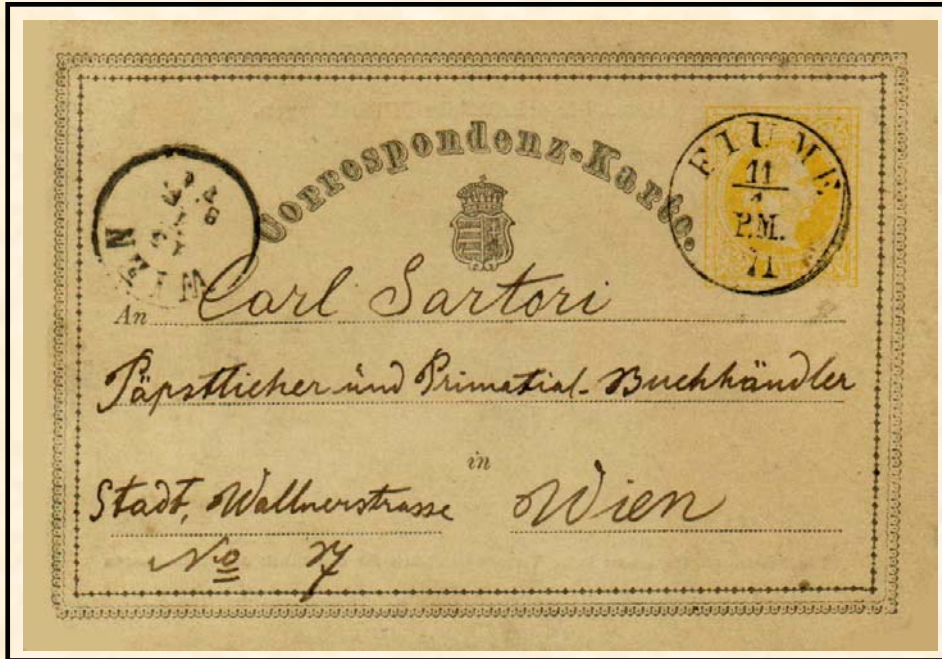 Correspondenz-Karte.
FIUME
11
1
P.M.
71
WIEN
An Carl Sartori
Päpstlicher und Primatial-Buchhändler
in
Stadt, Wallnerstrasse Wien
No 7